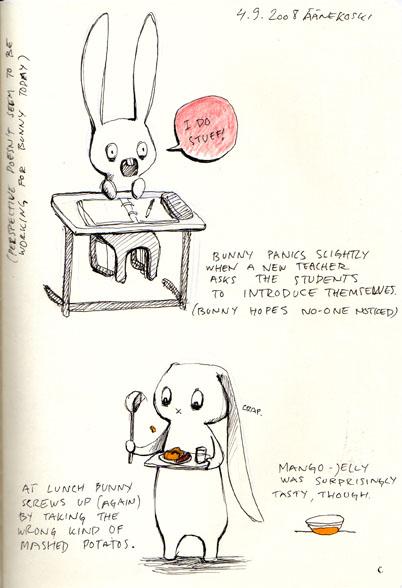 4.9.2008 ÄÄNEKOSKI
(PERSPECTIVE DOESN'T SEEM TO BE
WORKING FOR BUNNY TODAY)
I DO
STUFF!
BUNNY PANICS SLIGHTLY
WHEN A NEW TEACHER
ASKS THE STUDENTS
TO INTRODUCE THEMSELVES.
(BUNNY HOPES NO-ONE NOTICED)
CRAP.
AT LUNCH BUNNY
SCREWS UP (AGAIN)
BY TAKING THE
WRONG KIND OF
MASHED POTATOS.
MANGO-JELLY
WAS SURPRISINGLY
TASTY, THOUGH.
C